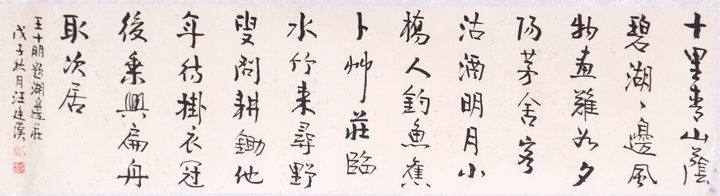 十里青山蔭
碧湖、邊風
物畫難如夕
陽茅舍客
沽酒明月小
橋人釣魚舊
卜艸莊臨
水竹來尋野
叟問耕鋤他
年待掛衣冠
後乘興扁舟
取次居
王十朋題湖邊莊
戊子秋月汪廷漢